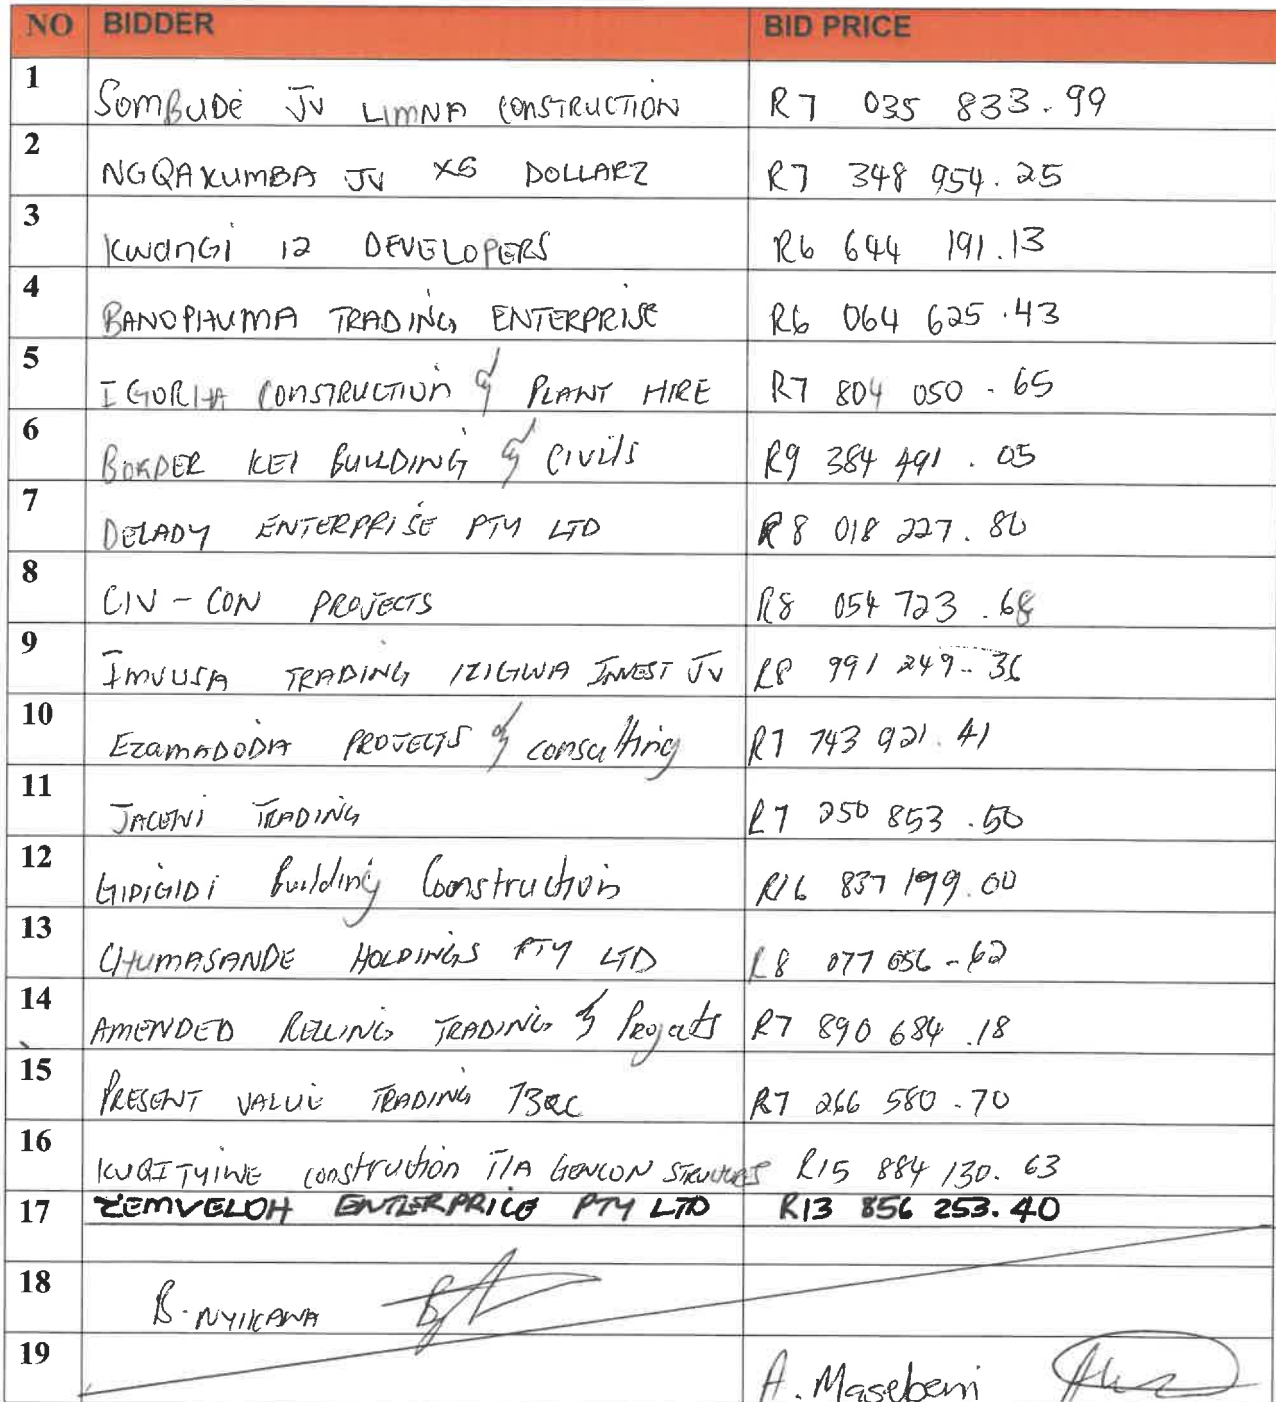 NO BIDDER BID PRICE
1 SOMBUDE JV LIMNA CONSTRUCTION R7 035 833.99
2 NGQAKUMBA JV XS DOLLARZ R7 348 954.25
3 KWANGI 12 DEVELOPERS R6 644 191.13
4 BANOPHUMA TRADING ENTERPRISE R6 064 625.43
5 IGORHA CONSTRUCTION & PLANT HIRE R7 804 050.65
6 BORDER KEI BUILDING & CIVILS R9 384 491.05
7 DELADY ENTERPRISE PTY LTD R8 018 227.80
8 CIV-CON PROJECTS R8 054 723.68
9 IMVUSA TRADING IZIGWA INVEST JV R8 991 249-36
10 EZAMADODA PROJECTS & consulting R7 743 921.41
11 TRADING R7 250 853.50
12 GIDIGIDI Building Construction R16 837 199.00
13 CHUMASANDE HOLDINGS PTY LTD R8 077 056-62
14 AMENDED RELLING TRADING & Projects R7 890 684.18
15 PRESENT VALUE TRADING R7 266 580.70
16 KUQITYIWE construction T/A GENCON STRUCTURES R15 884 130.63
17 ZEMVELOH ENTERPRICE PTY LTD R13 856 253.40
18 B. NYIKANA
19 A. Masebeni